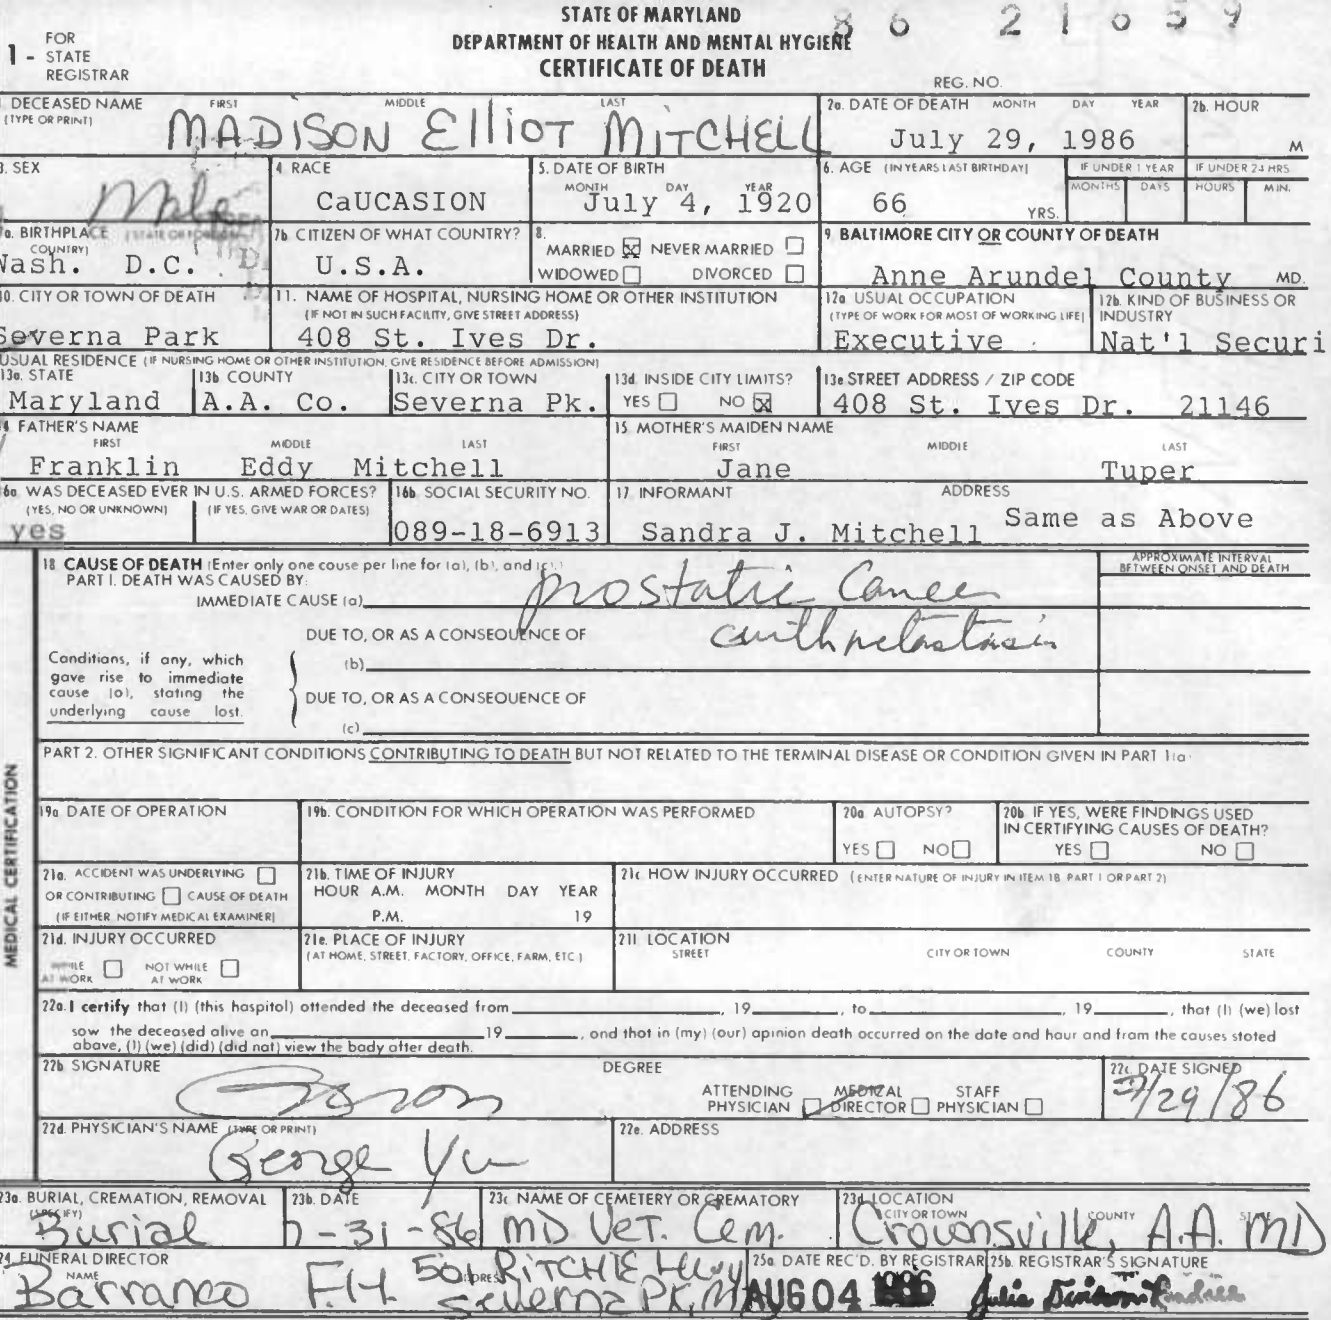 STATE OF MARYLAND
86 21659
DEPARTMENT OF HEALTH AND MENTAL HYGIENE
CERTIFICATE OF DEATH
1 - FOR STATE REGISTRAR
REG. NO.
DECEASED NAME FIRST MIDDLE LAST
(TYPE OR PRINT)
MADISON Elliot MITCHELL
2a. DATE OF DEATH MONTH DAY YEAR
July 29, 1986
2b. HOUR
M
3. SEX
Male
4 RACE
CaUCASION
5. DATE OF BIRTH
MONTH DAY YEAR
July 4, 1920
6. AGE (IN YEARS LAST BIRTHDAY)
66 YRS.
IF UNDER 1 YEAR
MONTHS DAYS
IF UNDER 24 HRS
HOURS MIN.
7a. BIRTHPLACE (STATE OR FOREIGN
COUNTRY)
Wash. D.C.
7b CITIZEN OF WHAT COUNTRY?
U.S.A.
8.
MARRIED ☒ NEVER MARRIED ☐
WIDOWED ☐ DIVORCED ☐
9. BALTIMORE CITY OR COUNTY OF DEATH
Anne Arundel County MD.
10. CITY OR TOWN OF DEATH
Severna Park
11. NAME OF HOSPITAL, NURSING HOME OR OTHER INSTITUTION
(IF NOT IN SUCH FACILITY, GIVE STREET ADDRESS)
408 St. Ives Dr.
12a USUAL OCCUPATION
(TYPE OF WORK FOR MOST OF WORKING LIFE)
Executive
12b. KIND OF BUSINESS OR
INDUSTRY
Nat'l Securi
USUAL RESIDENCE (IF NURSING HOME OR OTHER INSTITUTION, GIVE RESIDENCE BEFORE ADMISSION)
13a. STATE
Maryland
13b COUNTY
A.A. Co.
13c. CITY OR TOWN
Severna Pk.
13d. INSIDE CITY LIMITS?
YES ☐ NO ☒
13e STREET ADDRESS / ZIP CODE
408 St. Ives Dr. 21146
14 FATHER'S NAME
FIRST MIDDLE LAST
Franklin Eddy Mitchell
15. MOTHER'S MAIDEN NAME
FIRST MIDDLE LAST
Jane Tuper
16a WAS DECEASED EVER IN U.S. ARMED FORCES?
(YES, NO OR UNKNOWN) (IF YES, GIVE WAR OR DATES)
yes
16b SOCIAL SECURITY NO.
089-18-6913
17. INFORMANT ADDRESS
Sandra J. Mitchell Same as Above
18 CAUSE OF DEATH (Enter only one cause per line for (a), (b), and (c).)
PART I. DEATH WAS CAUSED BY:
IMMEDIATE CAUSE (a) prostatic Cancer
with metastasis
APPROXIMATE INTERVAL
BETWEEN ONSET AND DEATH
DUE TO, OR AS A CONSEQUENCE OF
(b)
Conditions, if any, which
gave rise to immediate
cause (a), stating the
underlying cause last.
DUE TO, OR AS A CONSEQUENCE OF
(c)
PART 2. OTHER SIGNIFICANT CONDITIONS CONTRIBUTING TO DEATH BUT NOT RELATED TO THE TERMINAL DISEASE OR CONDITION GIVEN IN PART 1(a)
MEDICAL CERTIFICATION
19a DATE OF OPERATION
19b. CONDITION FOR WHICH OPERATION WAS PERFORMED
20a AUTOPSY?
YES ☐ NO ☐
20b IF YES, WERE FINDINGS USED
IN CERTIFYING CAUSES OF DEATH?
YES ☐ NO ☐
21a. ACCIDENT WAS UNDERLYING ☐
OR CONTRIBUTING ☐ CAUSE OF DEATH
(IF EITHER, NOTIFY MEDICAL EXAMINER)
21b. TIME OF INJURY
HOUR A.M. MONTH DAY YEAR
P.M. 19
21c HOW INJURY OCCURRED (ENTER NATURE OF INJURY IN ITEM 18 PART 1 OR PART 2)
21d. INJURY OCCURRED
WHILE AT WORK ☐ NOT WHILE AT WORK ☐
21e. PLACE OF INJURY
(AT HOME, STREET, FACTORY, OFFICE, FARM, ETC.)
21f. LOCATION
STREET CITY OR TOWN COUNTY STATE
22a. I certify that (I) (this hospital) attended the deceased from , 19 , to , 19 , that (I) (we) last
saw the deceased alive on 19 , and that in (my) (our) opinion death occurred on the date and hour and from the causes stated
above, (I) (we) (did) (did not) view the body after death.
22b SIGNATURE DEGREE
ATTENDING PHYSICIAN ☐ MEDICAL DIRECTOR ☐ STAFF PHYSICIAN ☐
22c. DATE SIGNED
7/29/86
22d. PHYSICIAN'S NAME (TYPE OR PRINT)
George Yu
22e. ADDRESS
23a. BURIAL, CREMATION, REMOVAL
(SPECIFY)
Burial
23b. DATE
7-31-86
23c NAME OF CEMETERY OR CREMATORY
MD Vet. Cem.
23d LOCATION
CITY OR TOWN COUNTY STATE
Crownsville, A.A. MD
24 FUNERAL DIRECTOR
NAME ADDRESS
Barranco F.H. 501 RITCHIE Hwy
Severna Pk, M
25a. DATE REC'D. BY REGISTRAR
AUG 04 1986
25b. REGISTRAR'S SIGNATURE